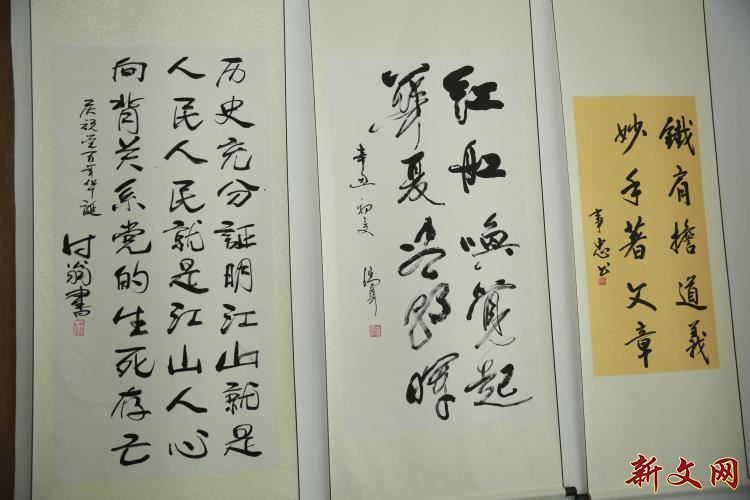 历史充分証明江山就是
人民人民就是江山人心
向背关系党的生死存亡
庆祝党百年华诞
付翁書
红舡唤觉起
華夏尽朝晖
辛丑初夏
鐵肩擔道義
妙手著文章
事忠书
新文网